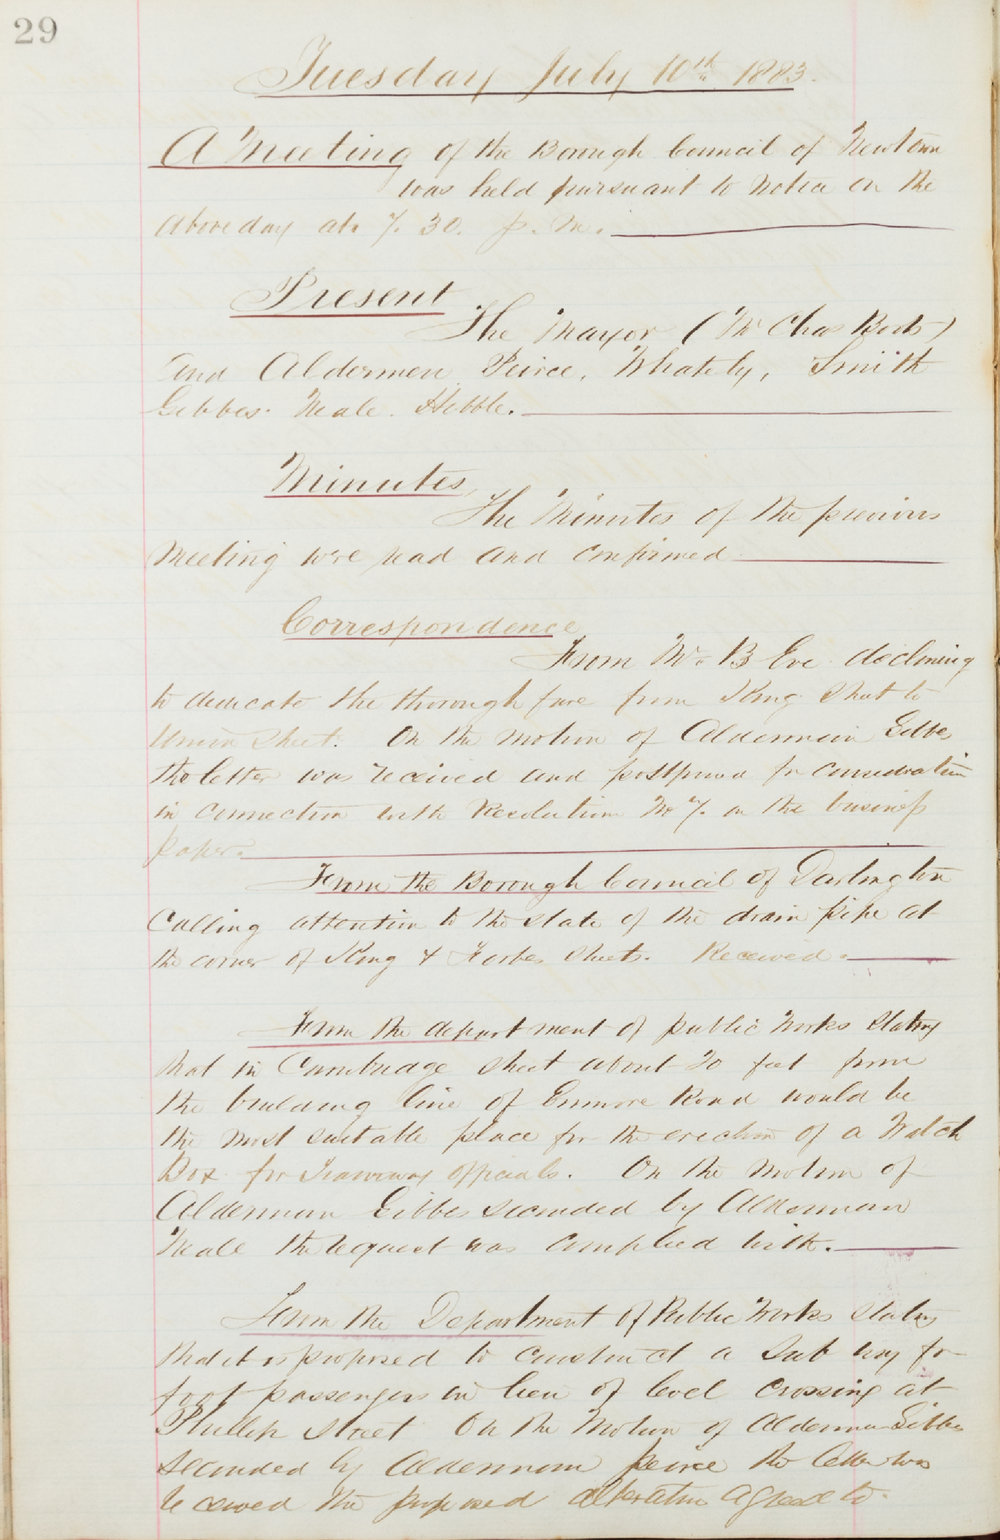 29
Tuesday July 10th 1883.
A Meeting of the Borough Council of Newtown
was held pursuant to notice on the
above day at 7.30. p.m.
Present
The Mayor (Mr Chas Boots)
and Aldermen Peirce, Whately, Smith
Gibbes. Neale. Hibble.
Minutes
The Minutes of the previous
Meeting were read and confirmed
Correspondence
From Mr B Eve declining
to dedicate the thorough fare from King Street to
Union Street. On the motion of Alderman Gibbes
the letter was received and postponed for consideration
in connection with Resolution No 7. on the business
paper.
From the Borough Council of Darlington
Calling attention to the state of the drain pipe at
the corner of King & Forbes Streets. Received.
From the department of public Works stating
that in Cambridge Street about 20 feet from
the building line of Enmore Road would be
the most suitable place for the erection of a Watch
Box for Tramway officials. On the Motion of
Alderman Gibbes seconded by Alderman
Neale the request was complied with.
From the Department of Public Works stating
that it is proposed to construct a Sub way for
foot passengers in lieu of level crossing at
Phillip Street On the Motion of Alderman Gibbes
seconded by Alderman peirce the letter was
received the proposed alteration agreed to.